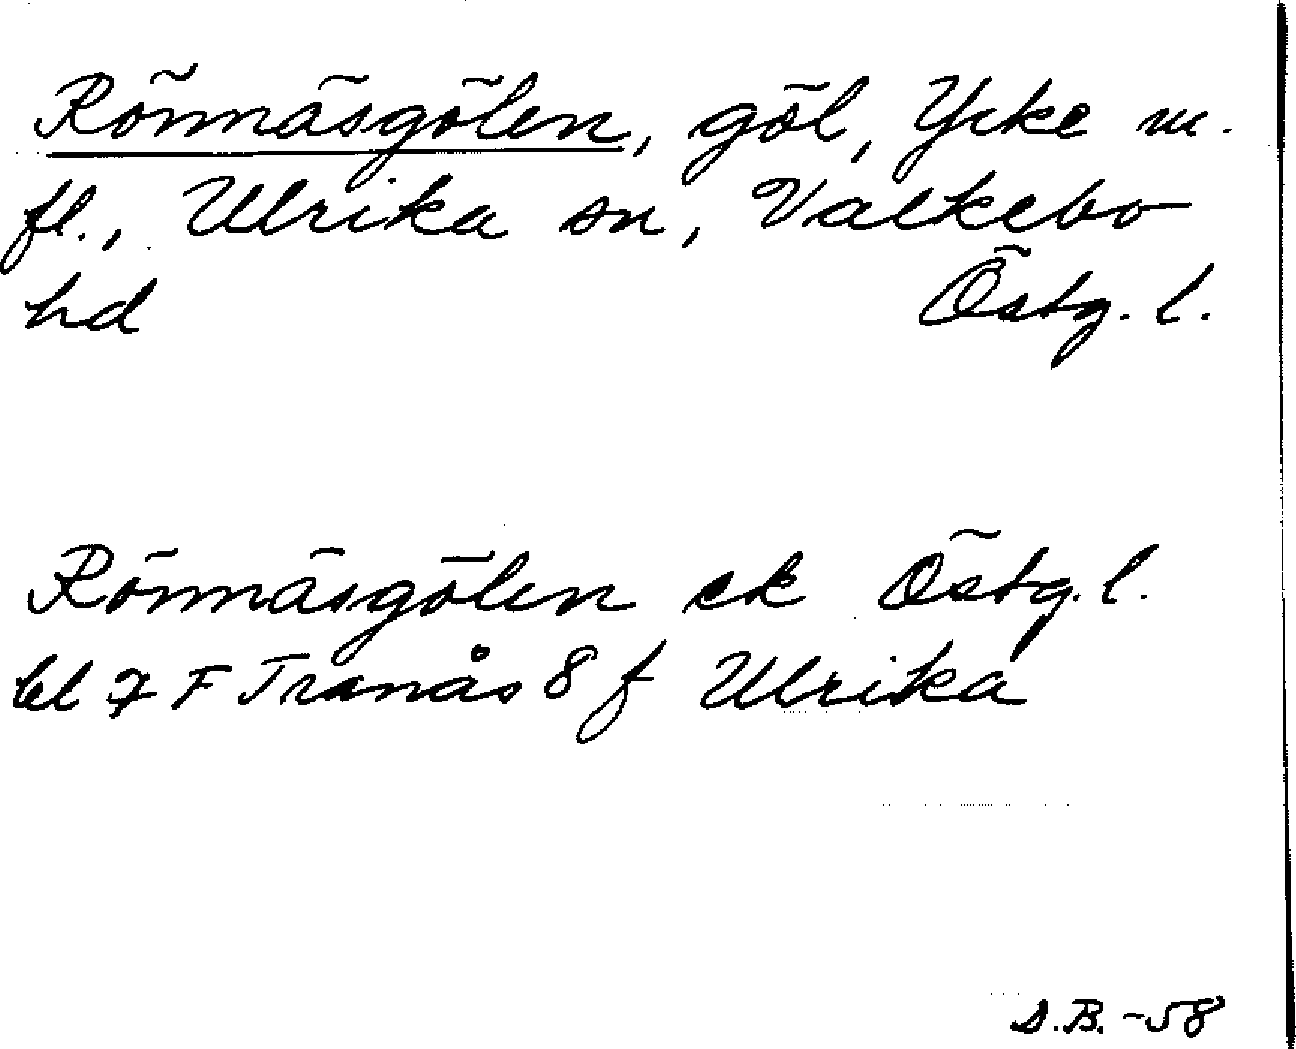 Rönnäsgölen, göl, Ycke m.
fl., Ulrika sn, Valkebo
hd Östg. l.
Rönnäsgölen ek Östg. l.
bl 7 F Tranås 8 f Ulrika
S.B. -58